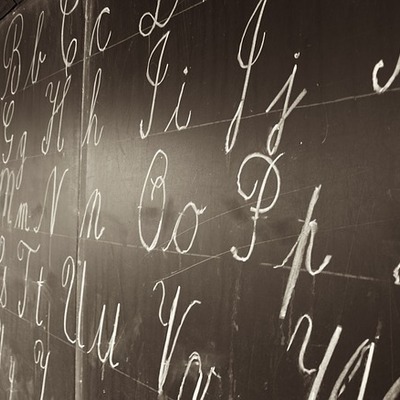 B b C c D
G g H h I i J j
M m N n O o P p
s T t U u V v